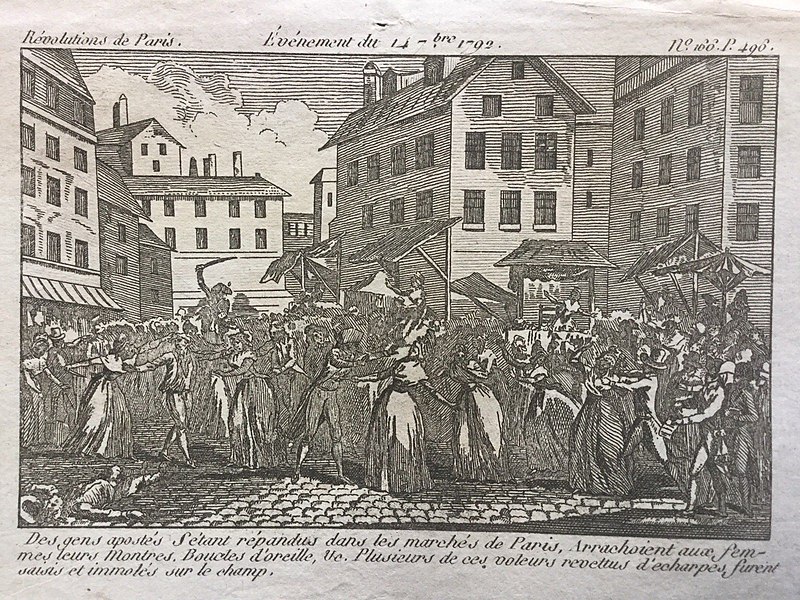 Révolutions de Paris. Événement du 14 7.bre 1792. No. 166. P. 496.
Des gens apostés S'étant répandus dans les marchés de Paris, Arrachoient aux fem-
mes leurs Montres, Boucles d'oreille, &c. Plusieurs de ces voleurs revetus d'écharpes, furent
saisis et immolés sur le champ.